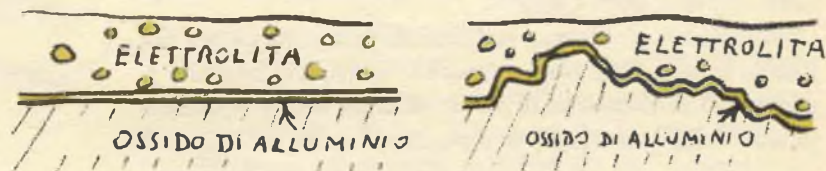 ELETTROLITA
OSSIDO DI ALLUMINIO
ELETTROLITA
OSSIDO DI ALLUMINIO